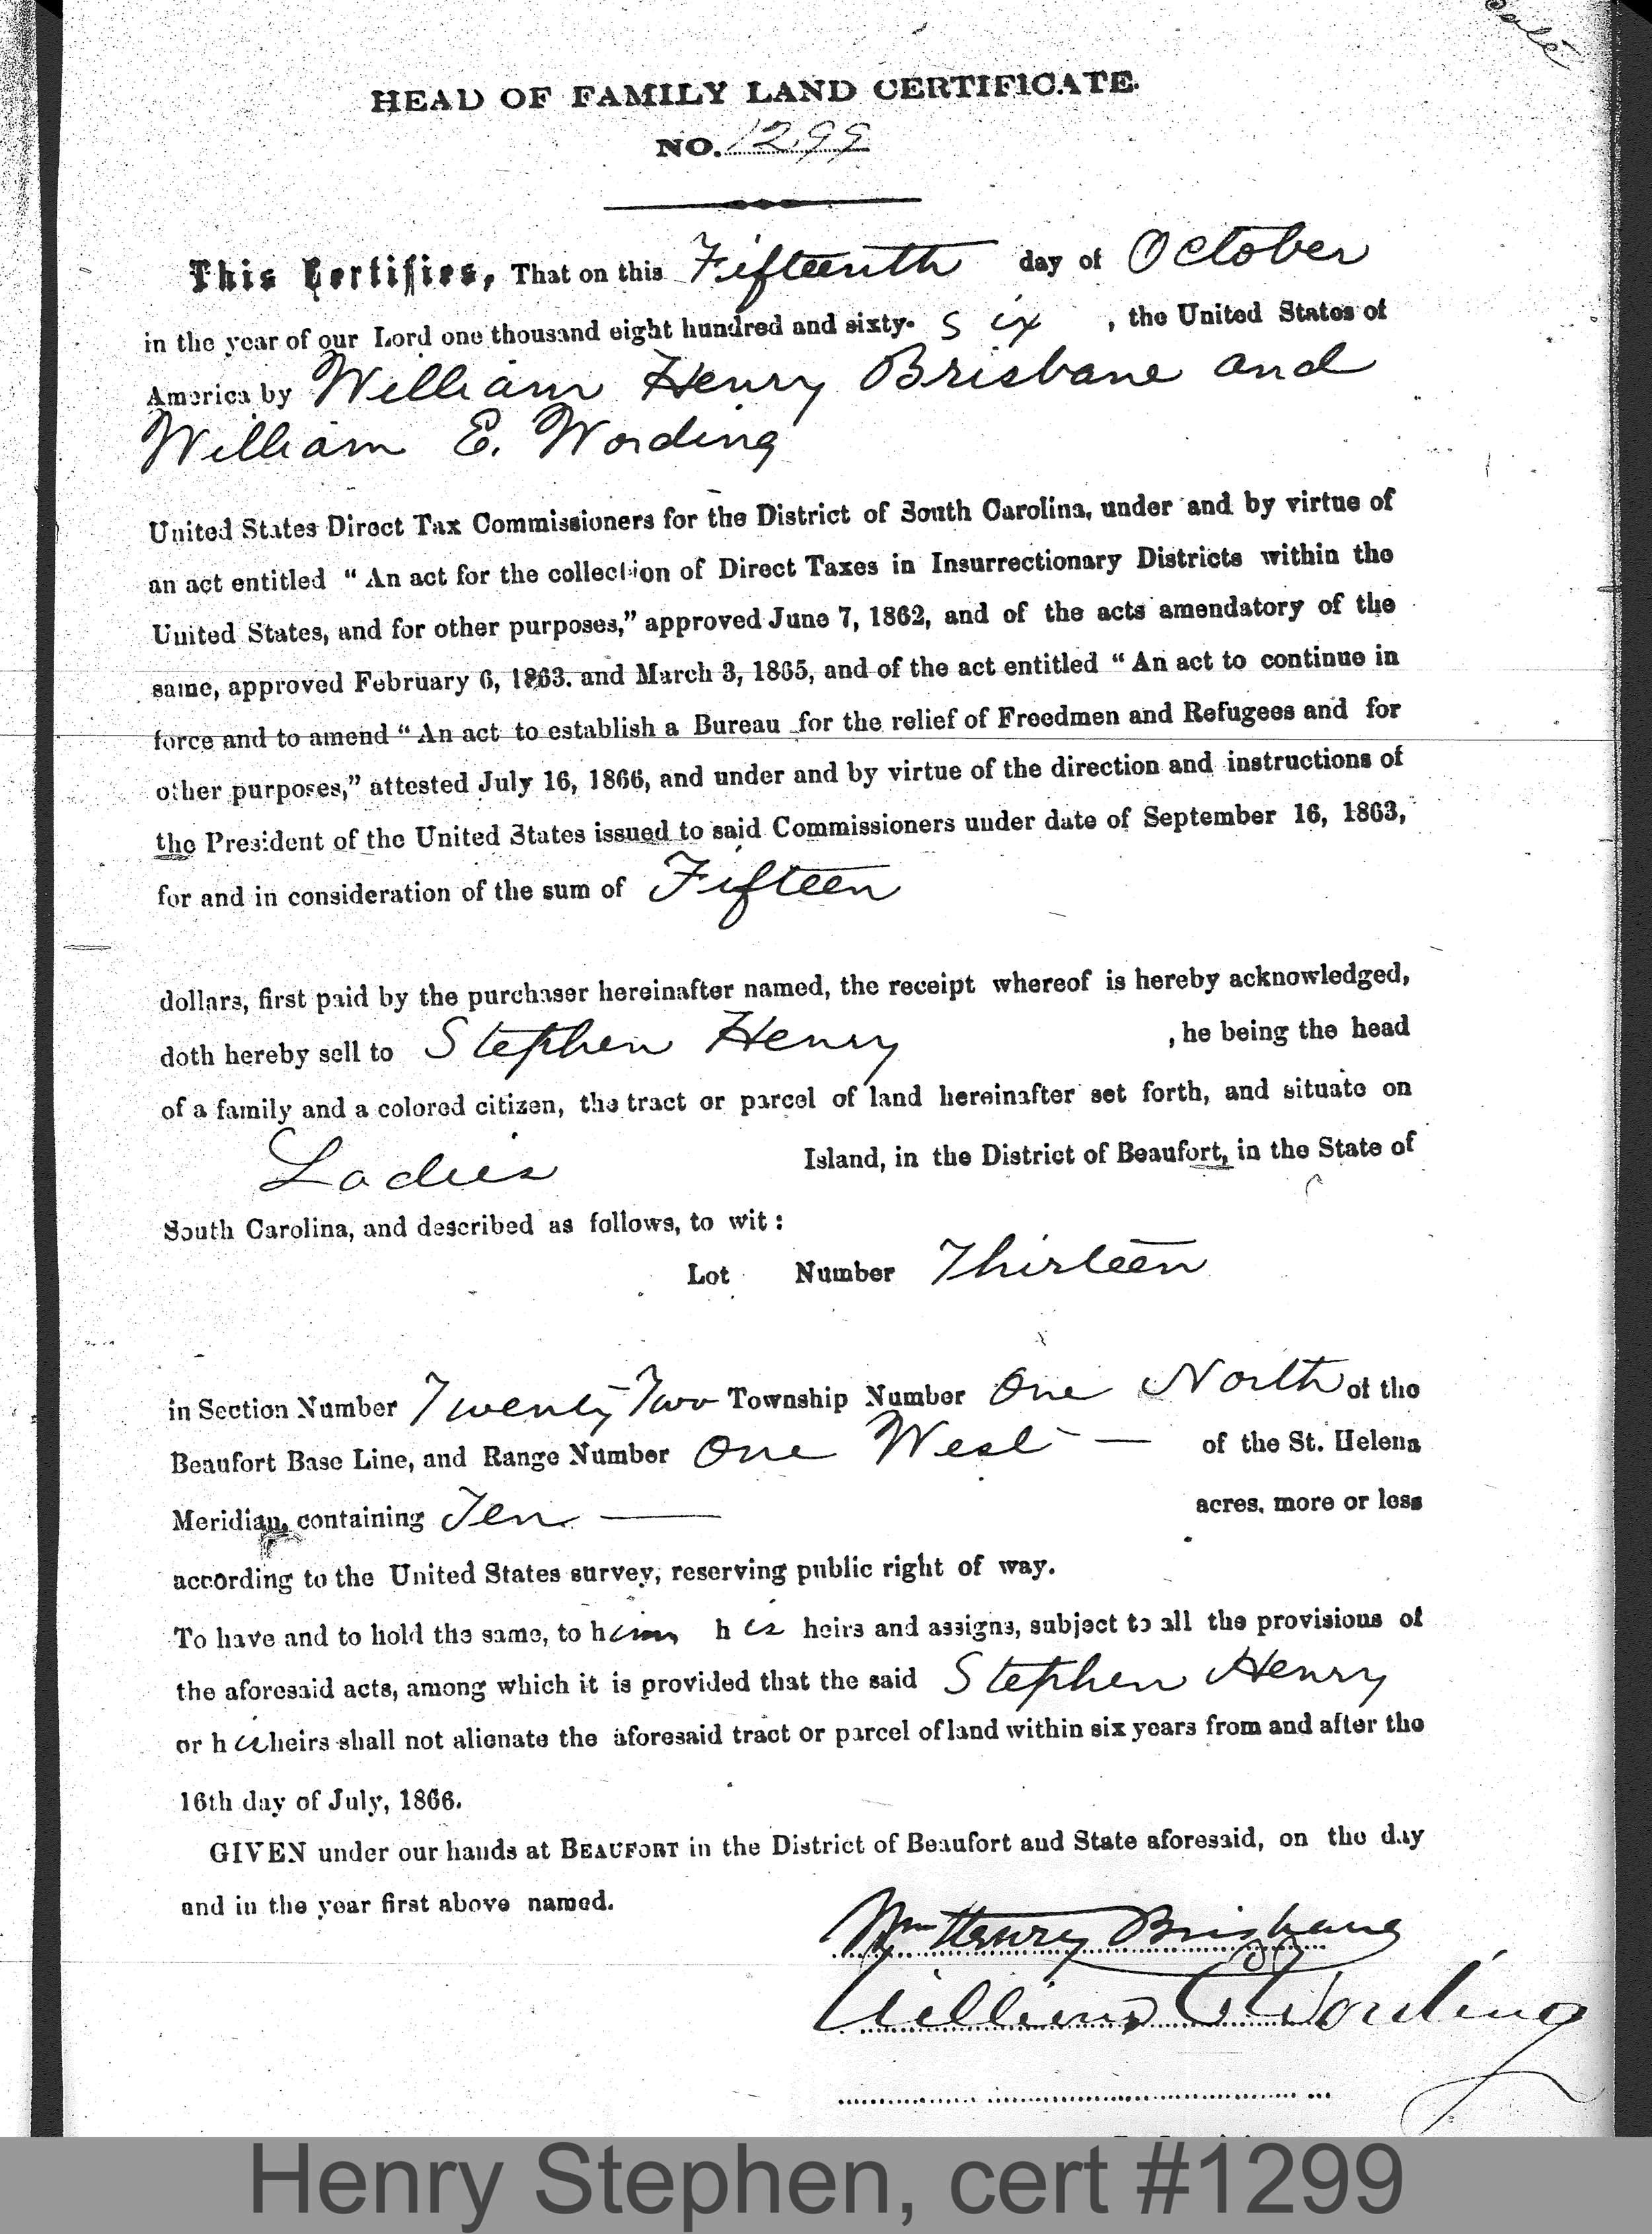 HEAD OF FAMILY LAND CERTIFICATE.
NO. 1299
This Certifies, That on this Fifteenth day of October
in the year of our Lord one thousand eight hundred and sixty- six , the United States of
America by William Henry Brisbane and
William E. Wording
United States Direct Tax Commissioners for the District of South Carolina, under and by virtue of
an act entitled “ An act for the collection of Direct Taxes in Insurrectionary Districts within the
United States, and for other purposes,” approved June 7, 1862, and of the acts amendatory of the
same, approved February 6, 1863. and March 3, 1865, and of the act entitled “ An act to continue in
force and to amend “ An act to establish a Bureau for the relief of Freedmen and Refugees and for
other purposes,” attested July 16, 1866, and under and by virtue of the direction and instructions of
the President of the United States issued to said Commissioners under date of September 16, 1863,
for and in consideration of the sum of Fifteen
dollars, first paid by the purchaser hereinafter named, the receipt whereof is hereby acknowledged,
doth hereby sell to Stephen Henry , he being the head
of a family and a colored citizen, the tract or parcel of land hereinafter set forth, and situate on
Ladies Island, in the District of Beaufort, in the State of
South Carolina, and described as follows, to wit :
Lot Number Thirteen
in Section Number Twenty Two Township Number One North of the
Beaufort Base Line, and Range Number One West — of the St. Helena
Meridian, containing Ten — acres, more or less
according to the United States survey, reserving public right of way.
To have and to hold the same, to him his heirs and assigns, subject to all the provisions of
the aforesaid acts, among which it is provided that the said Stephen Henry
or his heirs shall not alienate the aforesaid tract or parcel of land within six years from and after the
16th day of July, 1866.
GIVEN under our hands at BEAUFORT in the District of Beaufort and State aforesaid, on the day
and in the year first above named.
Wm Henry Brisbane
William E Wording
Henry Stephen, cert #1299